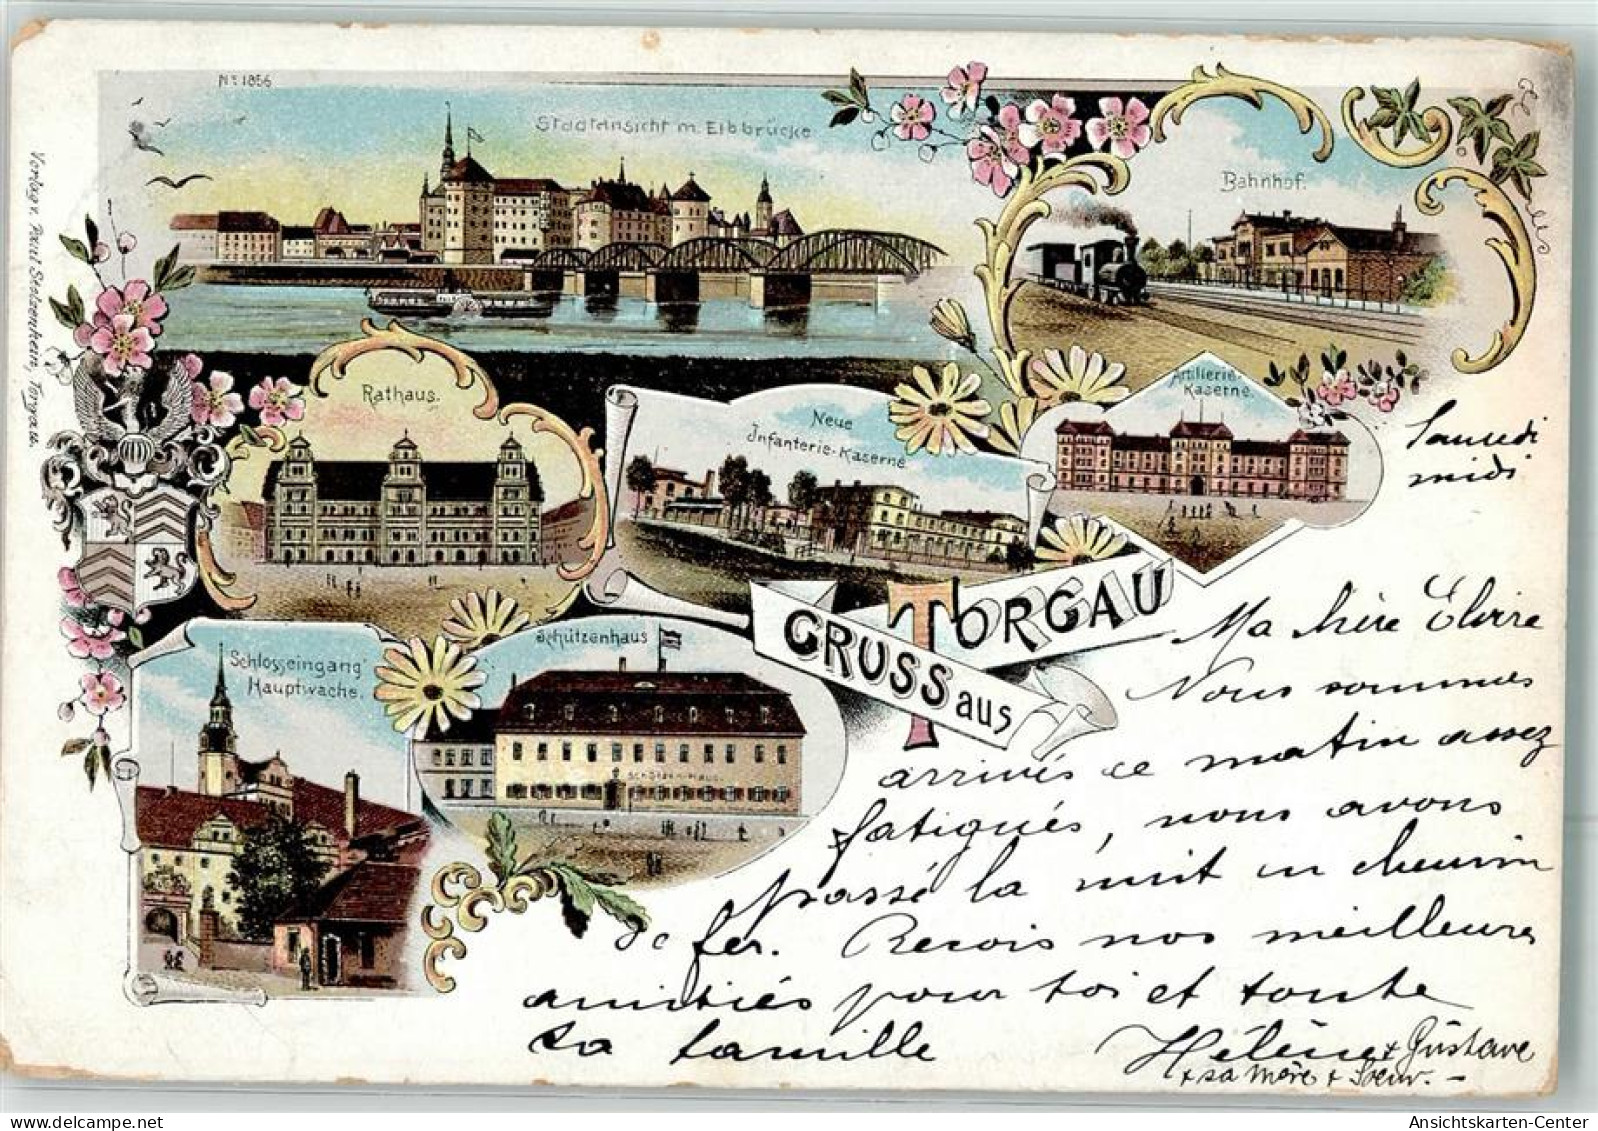 No 1856
Stadtansicht m. Elbbrücke
Bahnhof.
Verlag v. Paul Stolzenhein, Torgau.
Rathaus.
Neue
Infanterie-Kaserne
Artillerie-
Kaserne.
Schlosseingang
Hauptwache.
Schützenhaus
SCHÜTZEN-HAUS.
GRUSS aus
TORGAU
Samedi
midi
Ma chère Elvire
Nous sommes
arrivés ce matin assez
fatigués, nous avons
passé la nuit en chemin
de fer. Recois nos meilleures
amitiés pour toi et toute
ta famille
Hélène + Gustave
+ sa mère + Soeur. -
Ansichtskarten-Center